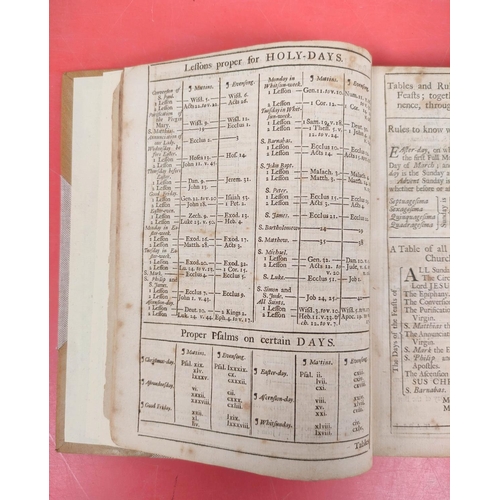 Lessons proper for HOLY-DAYS.
¶ Mattins. ¶ Evensong.
Conversion of
S. Paul.
1 Lesson — Wisd. 5. — Wisd. 6.
2 Lesson — Acts 22. to v. 22. — Acts 26.
Purification of
the Virgin
Mary. — Wisd. 9. — Wisd. 12.
S. Matthias. — 19 — Ecclus 1.
Annunciation of
our Lady. — Ecclus 2. — 3
Wednesday before
Easter.
1 Lesson — Hosea 13. — Hos. 14.
2 Lesson — John 11. v. 45.
Thursday before
Easter.
1 Lesson — Dan. 9. — Jerem. 31.
2 Lesson — John 13.
Good Friday.
1 Lesson — Gen. 22. to v. 20 — Isaiah 53.
2 Lesson — John 18. — 1 Pet. 2.
Easter-even.
1 Lesson — Zech. 9. — Exod. 13.
2 Lesson — Luke 23. v. 50. — Heb. 4.
Monday in Easter-week.
1 Lesson — Exod. 16. — Exod. 17.
2 Lesson — Matth. 28. — Acts 3.
Tuesday in Easter-week.
1 Lesson — Exod. 20. — Exod. 32.
2 Lesson — Lu. 24. to v. 13. — 1 Cor. 15.
S. Mark — Ecclus 4. — Ecclus 5.
S. Philip and
S. James.
1 Lesson — Ecclus 7. — Ecclus 9.
2 Lesson — John 1. v. 43.
Ascension-day.
1 Lesson — Deut. 10. — 2 Kings 2.
2 Lesson — Luk. 24. v. 44. — Eph. 4. to v. 17.
¶ Mattins. ¶ Evensong.
Monday in
Whitsun-week.
1 Lesson — Gen. 11. to v. 10.
2 Lesson — 1 Cor. 12.
Tuesday in Whitsun-week.
1 Lesson — 1 Sam. 19. v. 18. — Deut. 30
2 Lesson
S. Barnabas.
1 Lesson — Ecclus 10. — Ecclus
2 Lesson — Acts 14. — Acts
S. John Bapt.
1 Lesson — Malach. 3. — Malach.
2 Lesson — Matth. 3. — Matth.
S. Peter.
1 Lesson — Ecclus 15. — Ecclus
2 Lesson — Acts 3. — Acts 4.
S. James. — Ecclus 21. — Ecclus
S. Bartholomew — 24 — 29
S. Matthew. — 35 — 38
S. Michael.
1 Lesson — Gen. 32. — Dan. 10.
2 Lesson — Acts 12. — Jude,
S. Luke — Ecclus 51. — Job 1.
S. Simon and
S. Jude. — Job 24, 25. — 42
All Saints.
1 Lesson — Wisd. 3. to v. 10. — Wisd. 5.
2 Lesson — Heb. 11. v. 33. & — Apoc. 19.
ch. 12. to v. 7.
Proper Psalms on certain DAYS.
Mattins. Evensong.
¶ Christmas-day. Psal. xix. Psal. lxxxix.
xlv. cx.
lxxxv. cxxxii.
¶ Ashwednesday. vi. cii.
xxxii. cxxx.
xxxviii. cxliii.
¶ Good Friday. xxii. lxix.
xl. lxxxviii.
liv.
¶ Mattins. ¶ Evensong.
¶ Easter-day. Psal. ii. cxiii.
lvii. cxiv.
cxi. cxviii.
¶ Ascension-day. viii. xxiv.
xv. xlvii.
xxi. cviii.
¶ Whitsunday. xlviii. civ.
lxviii. cxlv.
Tables
Tables and Rul
Feasts; toget
nence, throug
Rules to know w
EAster-day, on
the first Full M
Day of March;
day is the Sunday a
Advent Sunday
whether before or a
Septuagesima
Sexagesima
Quinquagesima
Quadragesima
Sunday is
A Table of all
Church
The Days of the Feasts of
ALL Sunda
The Circu
Lord JESU
The Epiphany.
The Conversio
The Purificatio
Virgin.
S. Matthias th
The Annunciat
Virgin.
S. Mark the E
S. Philip and
Apostles.
The Ascension
SUS CHR
S. Barnabas.